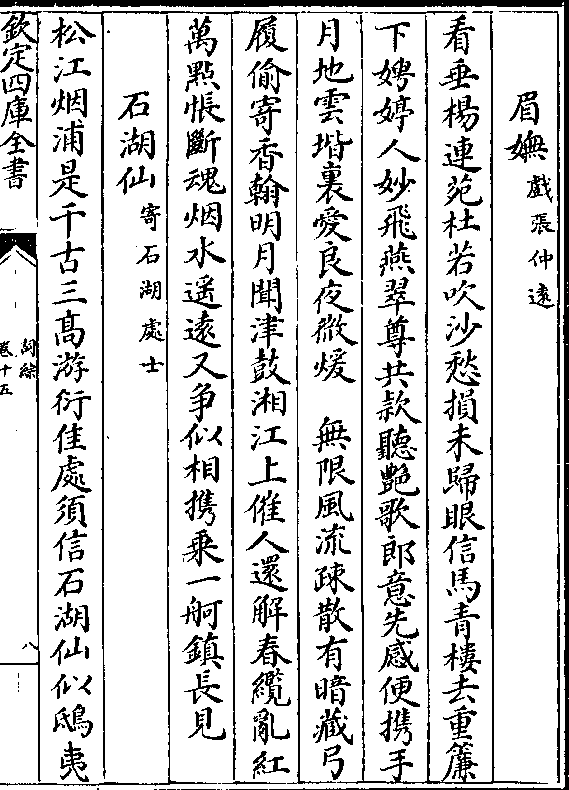 眉嫵戲張仲遠
看垂楊連苑杜若吹沙愁損未歸眼信馬青樓去重簾
下娉婷人妙飛燕翠尊共款聽艷歌郎意先感便携手
月地雲堦裏愛良夜微煖　無限風流疎散有暗藏弓
履偷寄香翰明月聞津鼓湘江上催人還解春纜亂紅
萬點悵斷魂烟水遥遠又争似相携乗一舸鎮長見
石湖仙寄石湖處士
松江烟浦是千古三髙游衍佳處須信石湖仙似鴟夷
欽定四庫全書
詞綜
卷十五
八